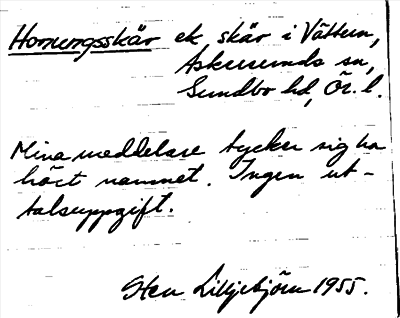 Hornungsskär ek skär i Vättern,
Askersunds sn,
Sundbo hd, Ör. l.
Mina meddelare tycker sig ha
hört namnet. Ingen ut-
talsuppgift.
Sten Lilljebjörn 1955.